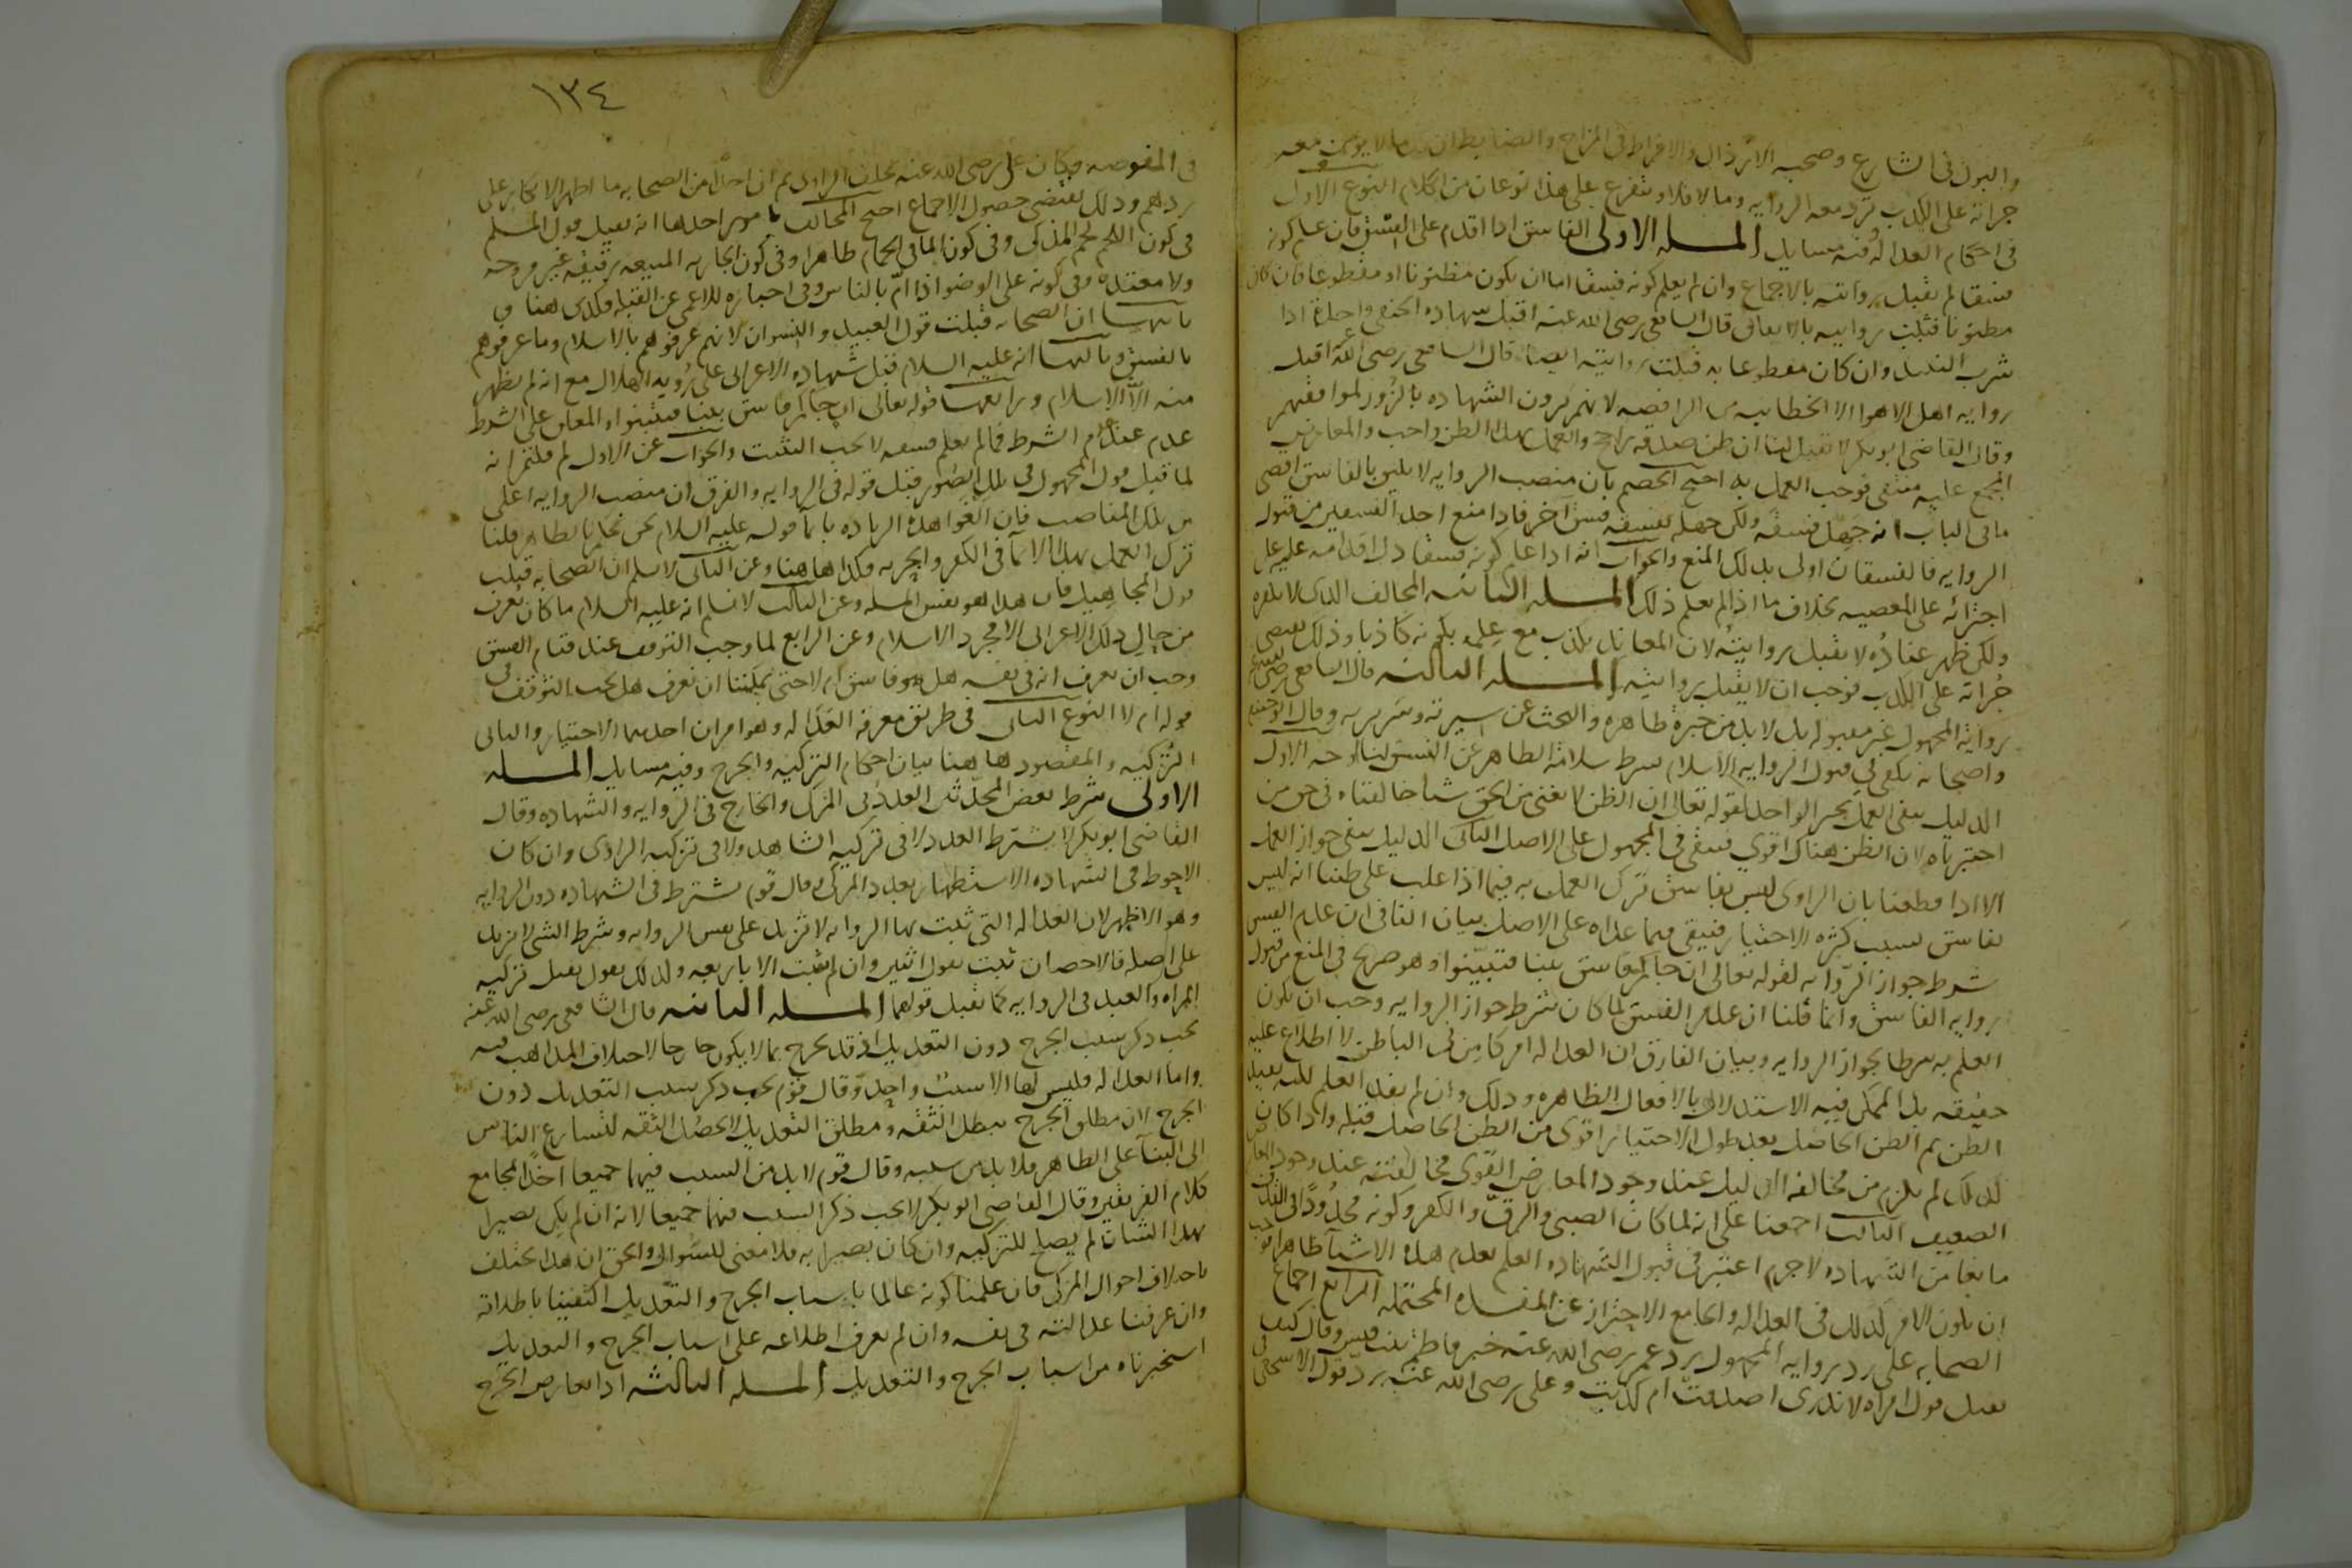 والبول فى الشارع وصحبه الارذال والافراط فى المزاح والضابط ان كل ما لا يومن معه
جراته على الكذب ترد معه الروايه وما لا فلا ويتفرع على هذا نوعان من الكلام النوع الاول
فى احكام العداله وفيه مسايل المسله الاولى الفاسق اذا اقدم على الفسق فان علم كونه
فسقا لم تقبل روايته بالاجماع وان لم يعلم كونه فسقا اما ان يكون مظنونا او مقطوعا فان كان
مظنونا قبلت روايته بالاتفاق قال الشافعى رضى الله عنه اقبل شهاده الحنفى واحده اذا
شرب النبيذ وان كان مقطوعا به قبلت روايته ايضا قال الشافعى رضى الله عنه اقبل
روايه اهل الاهوا الا الخطابيه من الرافضه لانهم يرون الشهاده بالزور لموافقيهم
وقال القاضى ابو بكر لا تقبل لنا ان ظن صدقه راجح والعمل بهذا الظن واجب والمعارض
المجمع عليه منتفى فوجب العمل به احتج الخصم بان منصب الروايه لا يليق بالفاسق اقصى
ما فى الباب انه جهل فسقه ولكن جهله بفسقه فسق آخر فاذا منع احد الفسقين من قبول
الروايه فالفسقان اولى بذلك المنع والجواب انه اذا علم كونه فسقا دل اقدامه عليه على
اجترائه على المعصيه بخلاف ما اذا لم يعلم ذلك المسله الثانيه المخالف الذى لا نكفره
ولكن ظهر عناده لا تقبل روايته لان المعاند يكذب مع علمه بكونه كاذبا وذلك يقتضى
جراته على الكذب فوجب ان لا تقبل روايته المسله الثالثه قال الشافعى رضى الله عنه
روايه المجهول غير مقبوله بل لا بد من خبره ظاهره والبحث عن سيرته وسريرته وقال ابو حنيفه
واصحابه يكفى فى قبول الروايه الاسلام بشرط سلامه الظاهر عن الفسق لنا وجوه الاول
الدليل ينفى العمل بخبر الواحد لقوله تعالى ان الظن لا يغنى من الحق شيا خالفناه فى حق من
اختبرناه لان الظن هناك اقوى فيبقى فى المجهول على الاصل الثانى الدليل ينفى جواز العمل
الا اذا قطعنا بان الراوى ليس بفاسق ترك العمل به فيما اذا غلب على ظننا انه ليس
بفاسق بسبب كثره الاختبار فيبقى فيما عداه على الاصل بيان النافى ان عدم الفسق
شرط جواز الروايه لقوله تعالى ان جاكم فاسق بنبا فتبينوا وهو صريح فى المنع من قبول
روايه الفاسق وانما قلنا ان عدم الفسق لما كان شرط جواز الروايه وجب ان يكون
العلم به شرطا لجواز الروايه وبيان الفارق ان العداله امر كامن فى الباطن لا اطلاع عليه
حقيقه بل الممكن فيه الاستدلال بالافعال الظاهره وذلك وان لم يفد العلم لكنه يفيد
الظن ثم الظن الحاصل بعد طول الاختبار اقوى من الظن الحاصل قبله واذا كان
كذلك لم يلزم من مخالفه الدليل عند وجود المعارض القوى مخالفته عند وجود المعارض
الضعيف الثالث اجمعنا على انه لما كان الصبى والرق والكفر وكونه محدودا فى القذف
مانعا من الشهاده لا جرم اعتبر فى قبول الشهاده العلم بعدم هذه الاشيا ظاهرا فوجب
ان يكون الامر كذلك فى العداله والجامع الاحتراز عن المفسده المحتمله الرابع اجماع
الصحابه على رد روايه المجهول رد عمر رضى الله عنه خبر فاطمه بنت قيس وقال كيف
نقبل قول امراه لا ندرى اصدقت ام كذبت وعلى رضى الله عنه رد قول الاشجعى فى
١٣٤
فى المفوضه وكان على رضى الله عنه يحلف الراوى ثم ان احدا من الصحابه ما اظهر الانكار على
ردهم وذلك يقتضى حصول الاجماع احتج المخالف بامور احدها انه يقبل قول المسلم
فى كون اللحم لحم المذكى وفى كون الما فى الحمام طاهرا وفى كون الجاريه المبيعه رقيقه غير مزوجه
ولا معتده وفى كونه على الوضو اذا ام بالناس وفى اخباره للاعمى عن القبله فكذى هنا و
ثانيها ان الصحابه قبلت قول العبيد والنسوان لانهم عرفوهم بالاسلام وما عرفوهم
بالفسق وثالثها انه عليه السلام قبل شهاده الاعرابى على رويه الهلال مع انه لم يظهر
منه الا الاسلام ورابعها قوله تعالى ان جاكم فاسق بنبا فتبينوا والمعلق على الشرط
عدم عند عدم الشرط فما لم يعلم فسقه لا يجب التثبت والجواب عن الاول لم قلتم انه
لما قبل قول المجهول فى تلك الصور قبل قوله فى الروايه والفرق ان منصب الروايه اعلى
من تلك المناصب فان الغوا هذه الزياده بايما قوله عليه السلام نحن نحكم بالظاهر قلنا
ترك العمل بهذا الايما فى الكفر والحريه فكذا هاهنا وعن الثانى لا نسلم ان الصحابه قبلت
قول المجاهيل فان هذا هو نفس المسله وعن الثالث لا نسلم انه عليه السلام ما كان يعرف
من حال ذلك الاعرابى الا مجرد الاسلام وعن الرابع لما وجب التوقف عند قيام الفسق
وجب ان نعرف انه فى نفسه هل هو فاسق ام لا حتى يمكننا ان نعرف هل يجب التوقف فى
قوله ام لا النوع الثانى فى طريق معرفه العداله وهو امران احدهما الاختبار والثانى
التزكيه والمقصود هاهنا بيان احكام التزكيه والجرح وفيه مسايل المسله
الاولى شرط بعض المحدثين العدد فى المزكى والجارح فى الروايه والشهاده وقال
القاضى ابو بكر لا يشترط العدد لا فى تزكيه الشاهد ولا فى تزكيه الراوى وان كان
الاحوط فى الشهاده الاستظهار بعدد المزكى وقال قوم يشترط فى الشهاده دون الروايه
وهو الاظهر لان العداله التى تثبت بها الروايه لا تزيد على نفس الروايه وشرط الشى لا يزيد
على اصله فالاحصان يثبت بقول اثنين وان لم يثبت الا باربعه ولذلك يقول يقبل تزكيه
المراه والعبد فى الروايه كما يقبل قولهما المسله الثانيه قال الشافعى رضى الله عنه
يجب ذكر سبب الجرح دون التعديل اذ قد يجرح بما لا يكون جارحا لاختلاف المذاهب فيه
واما العداله فليس لها الا سبب واحد وقال قوم يجب ذكر سبب التعديل دون
الجرح لان مطلق الجرح يبطل الثقه ومطلق التعديل لا يحصل الثقه لتسارع الناس
الى البنآ على الظاهر فلا بد من سببه وقال قوم لا بد من السبب فيهما جميعا اخذا لمجامع
كلام الفريقين وقال القاضى ابو بكر لا يجب ذكر السبب فيهما جميعا لانه ان لم يكن بصيرا
بهذا الشان لم يصلح للتزكيه وان كان بصيرا به فلا معنى للسوال والحق ان هذا يختلف
باختلاف احوال المزكى فان علمنا كونه عالما باسباب الجرح والتعديل اكتفينا باطلاقه
وان عرفنا عدالته فى نفسه وان لم نعرف اطلاعه على اسباب الجرح والتعديل
استخبرناه من اسباب الجرح والتعديل المسله الثالثه اذا تعارض الجرح